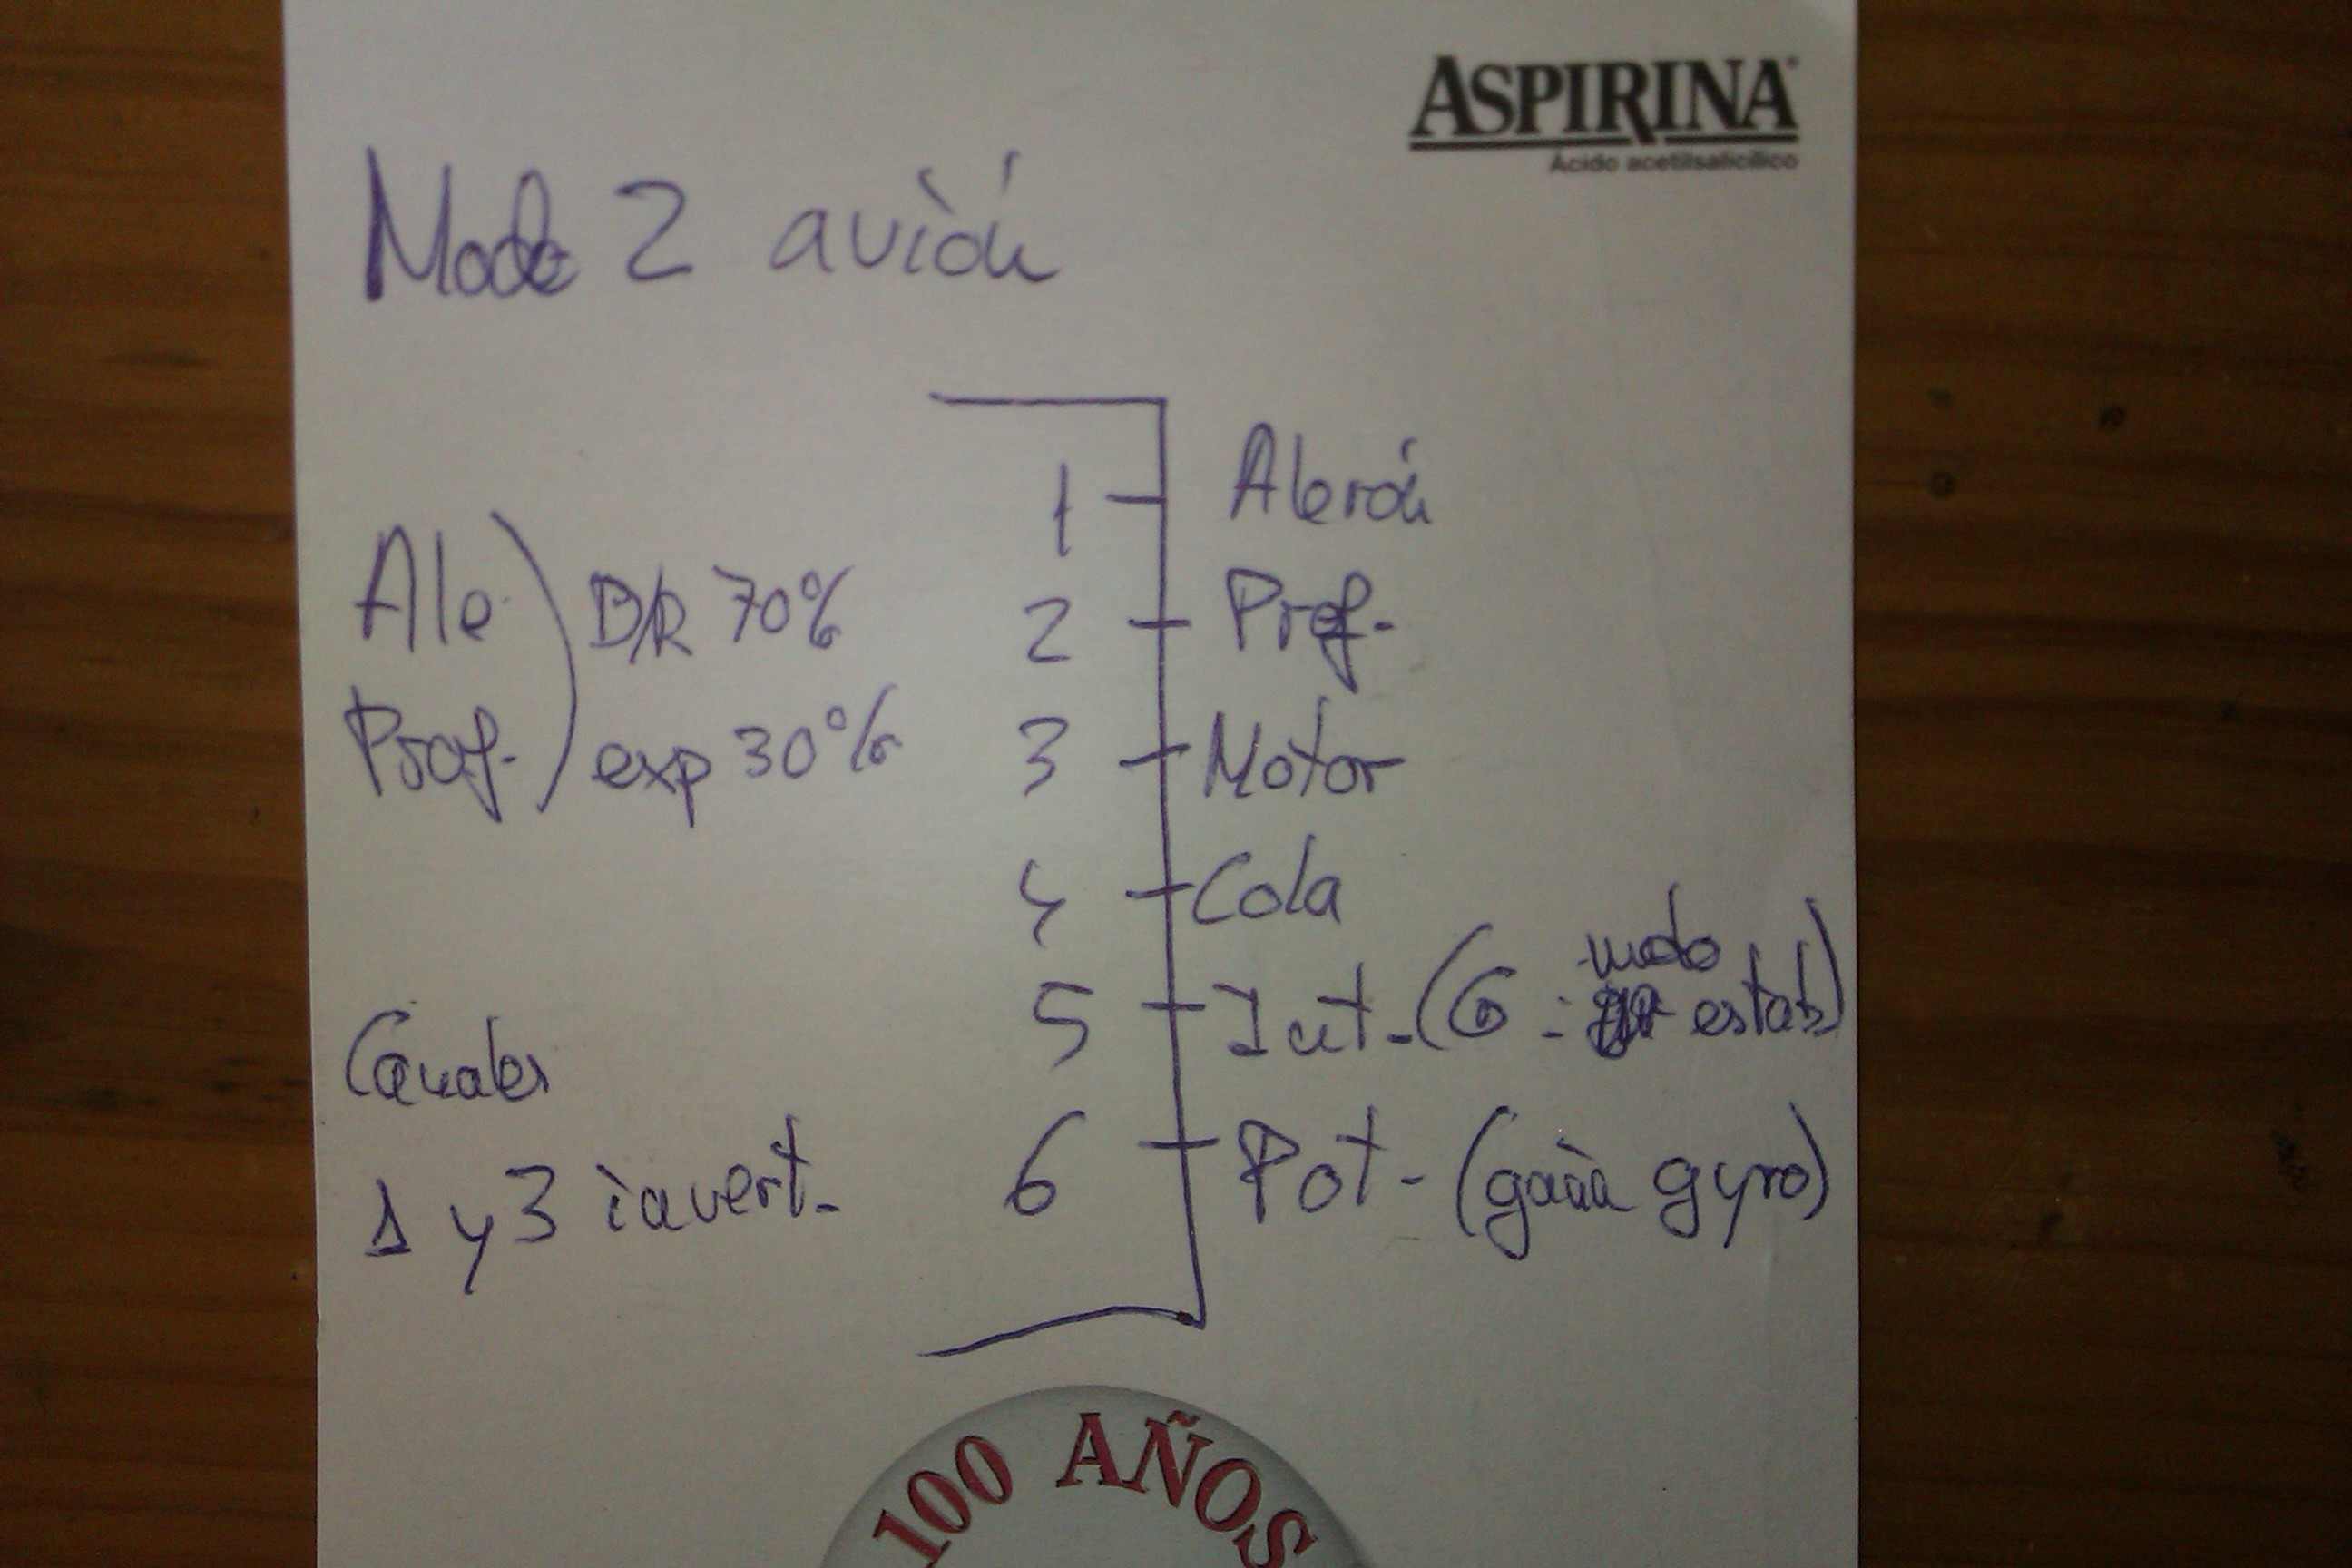 ASPIRINA
Ácido acetilsalicílico
Modo 2 avión
1 Alerón
2 Prof.
3 Motor
4 Cola
5 Int. (G = modo estab)
6 Pot. (gain gyro)
Ale.
Prof.
D/R 70%
exp 30%
Canales
1 y 3 invert.
100 AÑOS